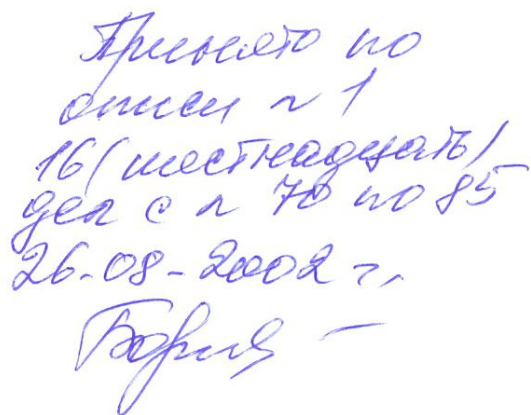 Принято по
описи № 1
16 (шестнадцать)
дел с № 70 по 85
26-08-2002 г.